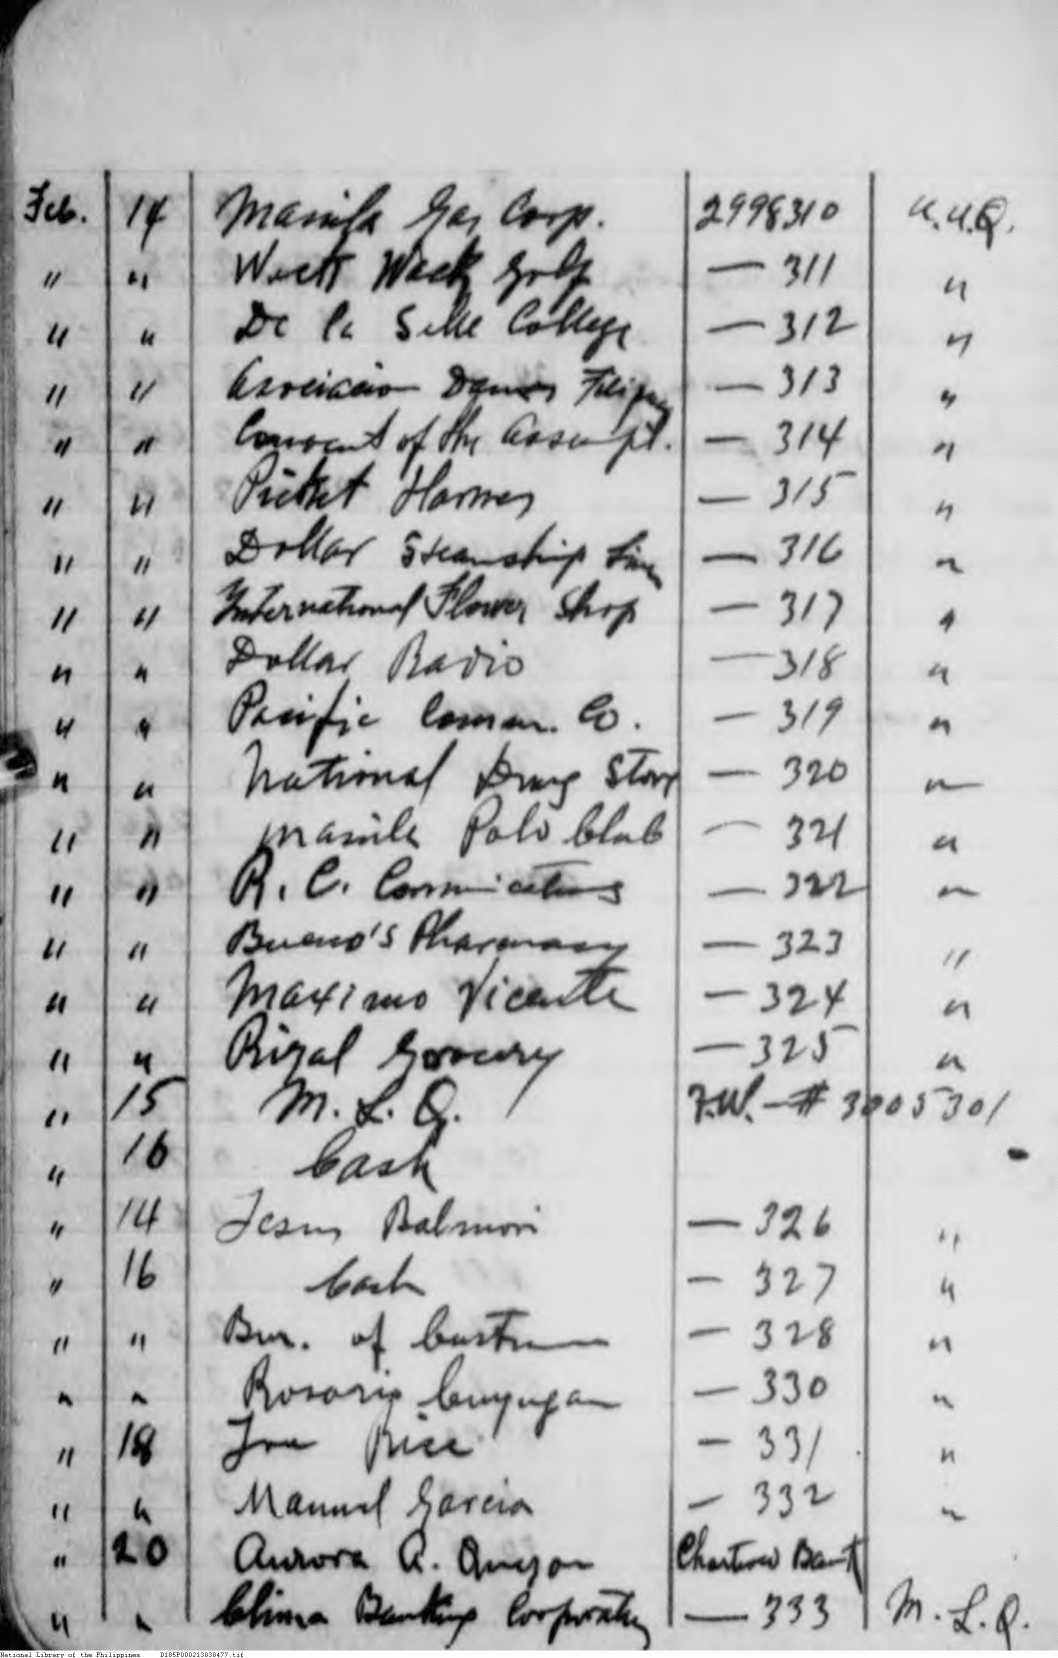 Feb. 14 Manila Gas Corp. 2998310 A.A.Q.
" " Wack Wack Golf — 311 "
" " De la Salle College — 312 "
" " Asociacion Damas Filipinas — 313 "
" " Convent of the Assumpt. — 314 "
" " Picket Harmes — 315 "
" " Dollar Steamship Line — 316 "
" " International Flower Shop — 317 "
" " Dollar Radio — 318 "
" " Pacific Comm. Co. — 319 "
" " National Drug Store — 320 "
" " Manila Polo Club — 321 "
" " R. C. Communications — 322 "
" " Bueno's Pharmacy — 323 "
" " Maximo Vicente — 324 "
" " Rizal Grocery — 325 "
" 15 M. L. Q. F.W. — # 3005301
" 16 Cash
" 14 Jesus Balmori — 326 "
" 16 Cash — 327 "
" " Bur. of Customs — 328 "
" " Rosario Cunyugan — 330 "
" 18 Rice — 331 "
" " Manuel Garcia — 332 "
" 20 Aurora A. Quezon Chartered Bank
" " China Banking Corporation — 333 M. L. Q.
National Library of the Philippines D185P000213038477.tif